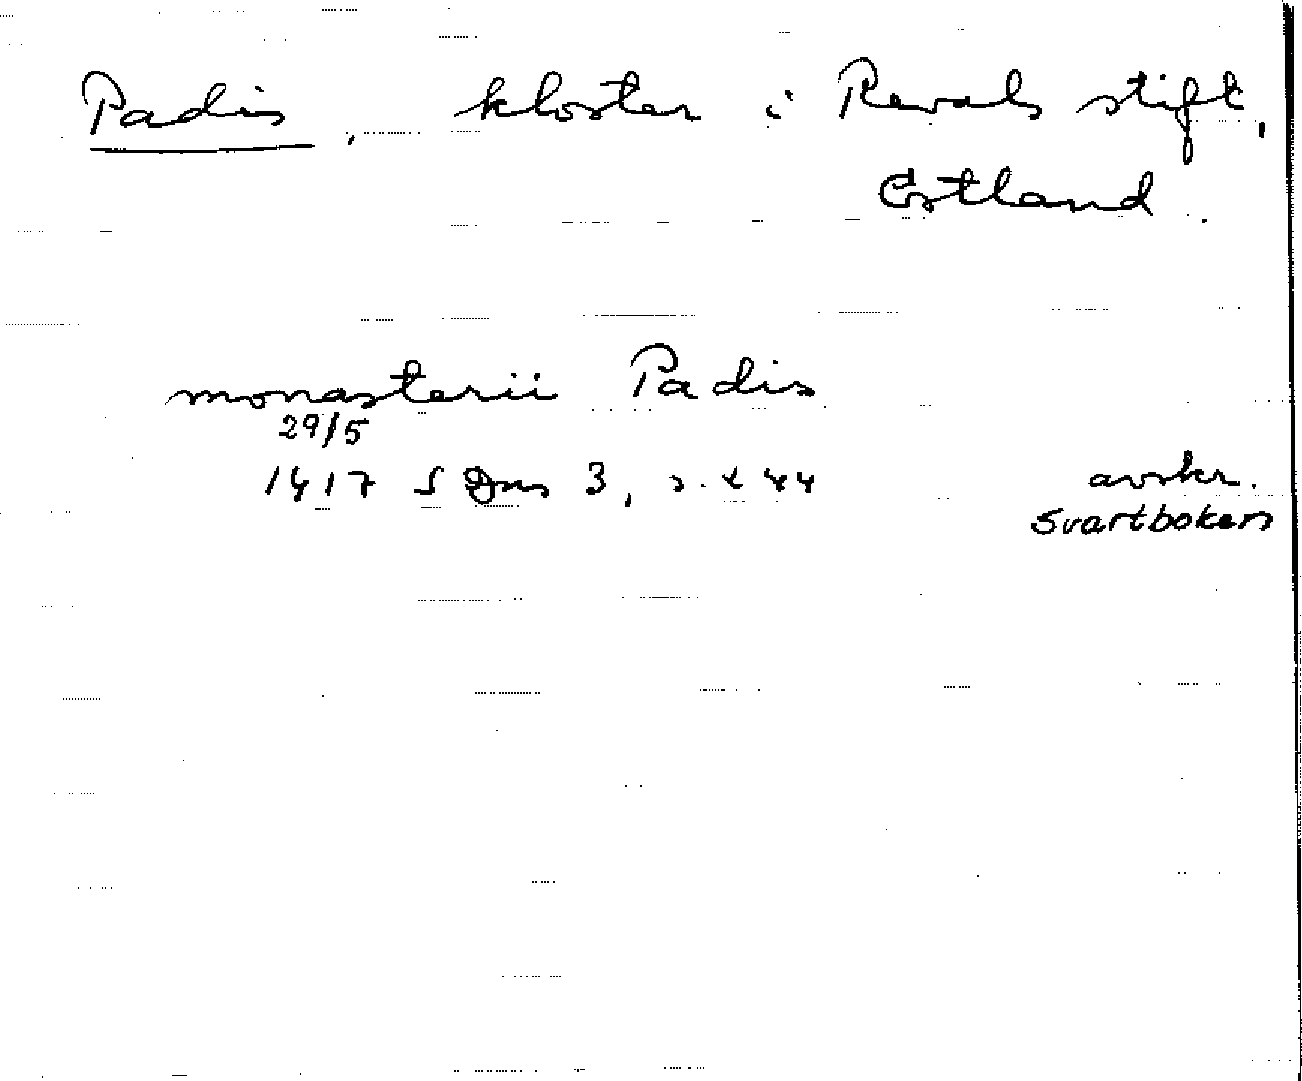 Padis, kloster i Revals stift,
Estland.
monasterii Padis
29/5
1417 S Dns 3, s. 244 avskr.
Svartboken